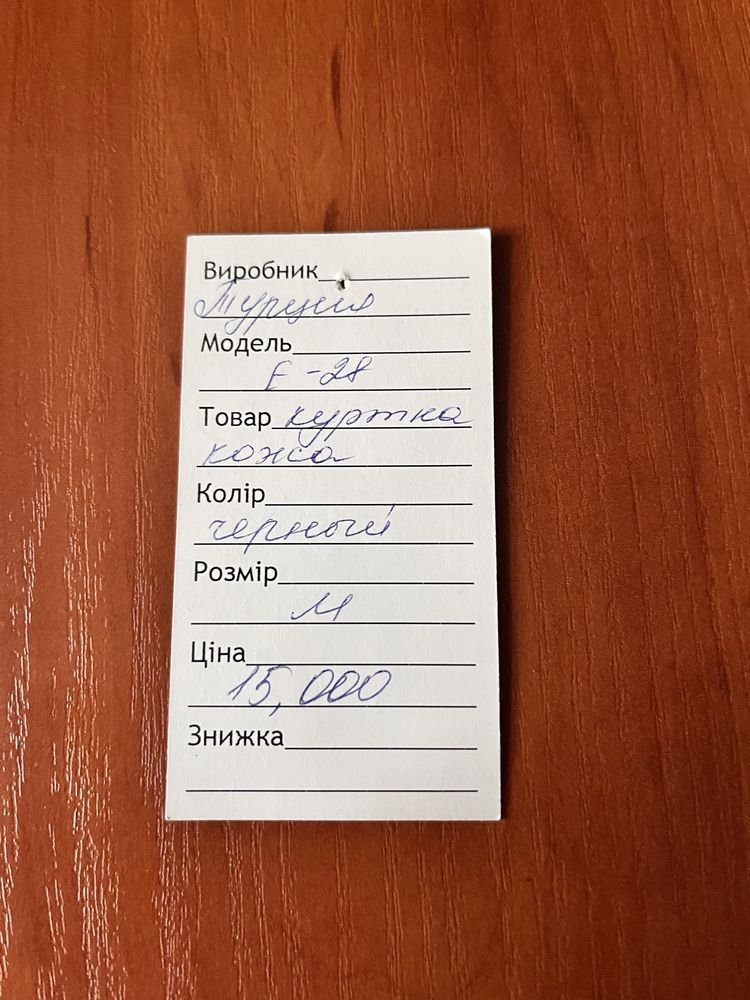 Виробник
Турция
Модель
E-28
Товар куртка
кожа
Колір
черный
Розмір
М
Ціна
15,000
Знижка